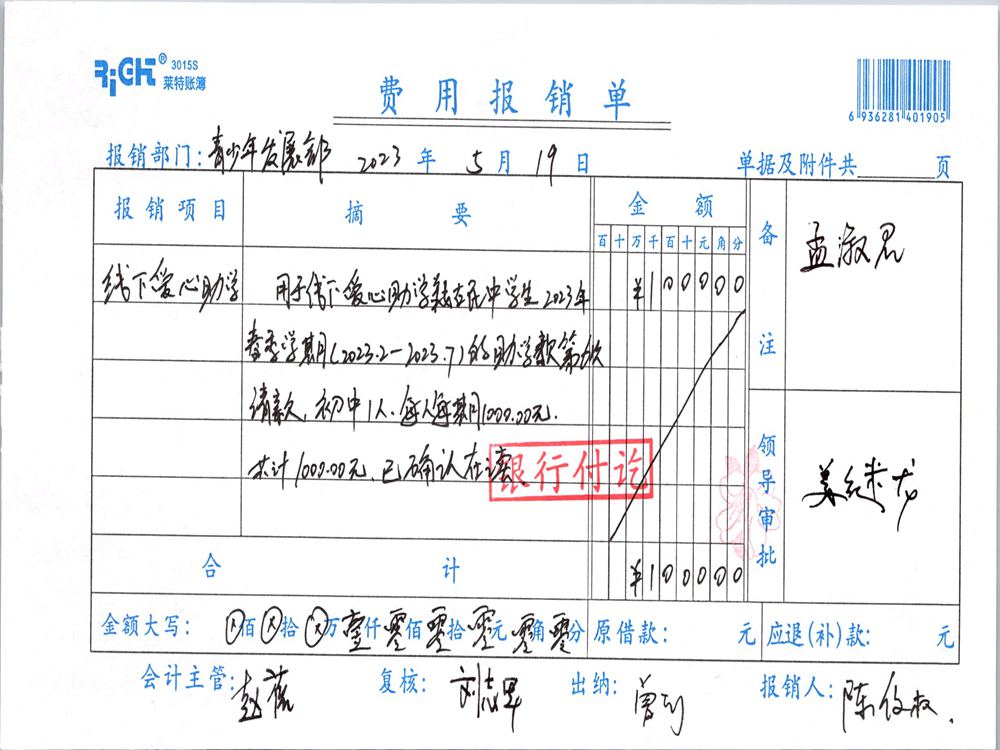 RiGHT® 3015S
莱特账簿
费用报销单
6 936281 401905
报销部门:青少年发展部 2023年5月19日 单据及附件共 页
报销项目 摘要 金额 备注
百十万千百十元角分
孟淑君
线下爱心助学 用于线下爱心助学在民中学生2023年 ¥100000
春季学期(2023.2-2023.7)的助学款第次
请款,初中1人,每人每期1000.00元.
共计1000.00元,已确认在读
银行付讫
领导审批
合计 ¥100000
金额大写: 佰 拾 万壹仟零佰零拾零元零角零分 原借款: 元 应退(补)款: 元
会计主管: 赵 复核: 刘志 出纳: 曾 报销人: 陈